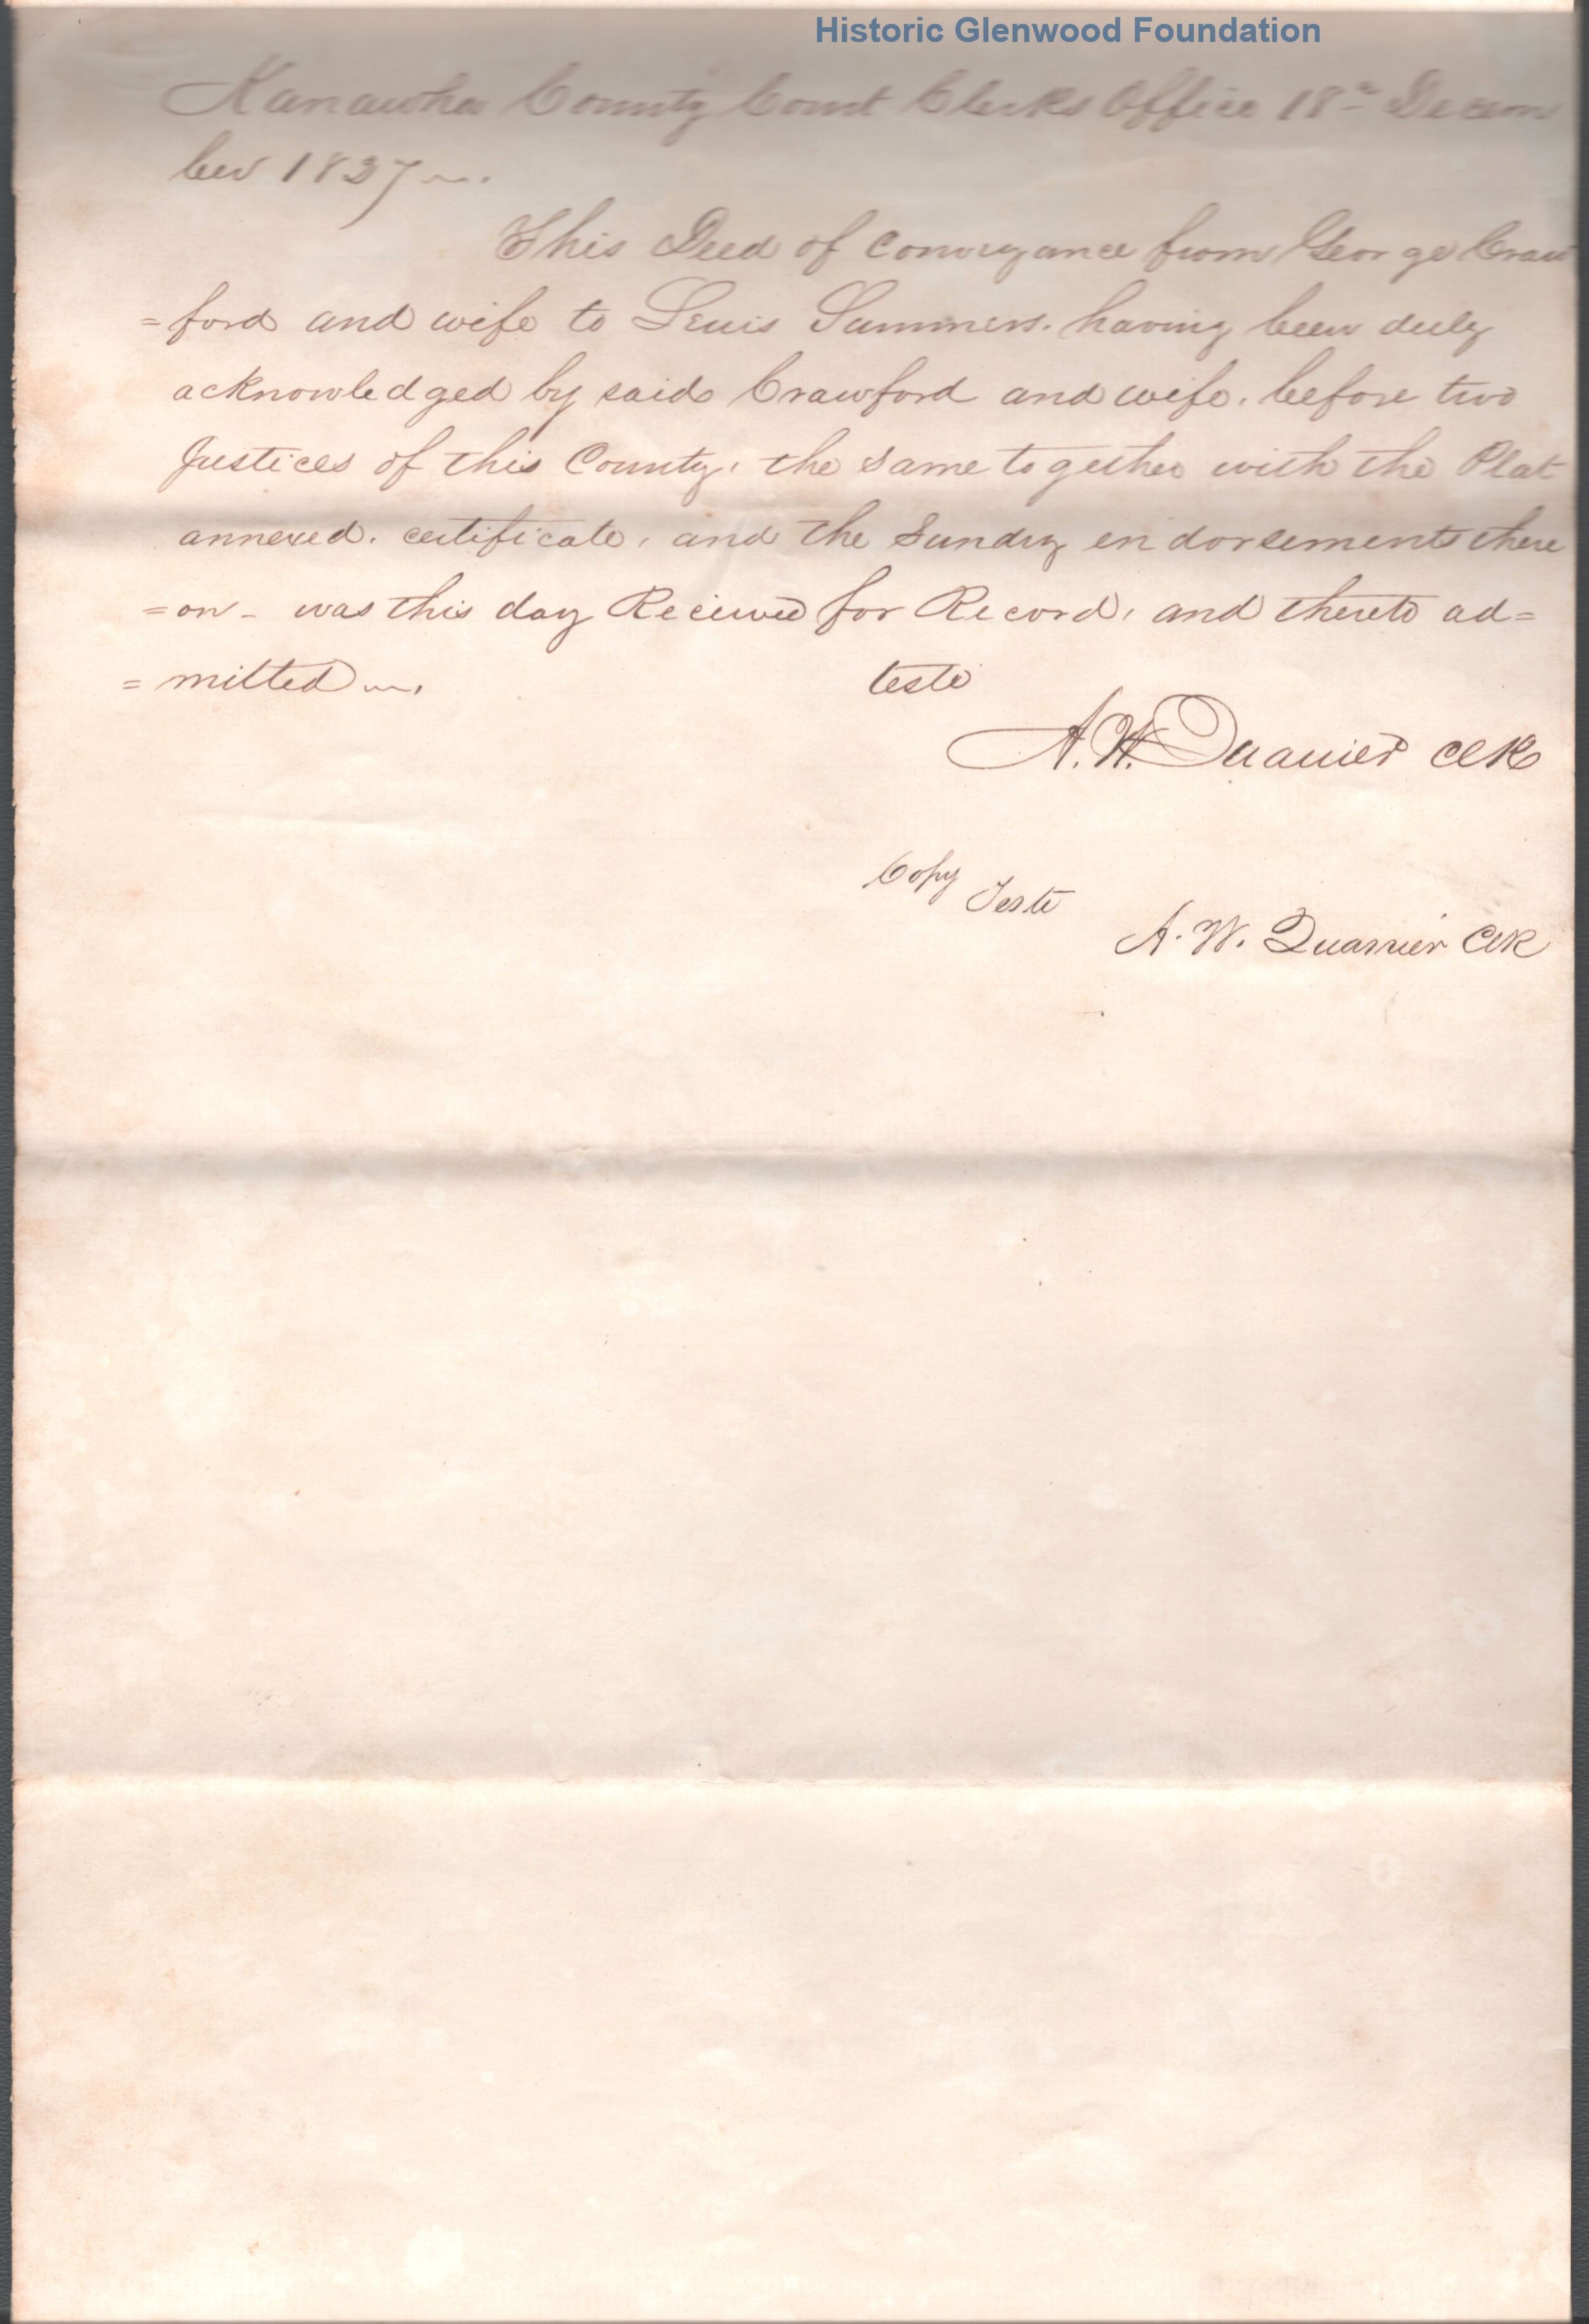 Historic Glenwood Foundation
Kanawha County Court Clerks Office 18th Decem
ber 1837
This Deed of Conveyance from George Craw
=ford and wife to Lewis Summers. having been duly
acknowledged by said Crawford and wife. before two
Justices of this County, the same together with the Plat
annexed. certificate, and the Sundry endorsements there
=on - was this day Received for Record, and thereto ad=
=mitted
teste
A. W. Quarrier Clk
Copy Teste
A. W. Quarrier Clk